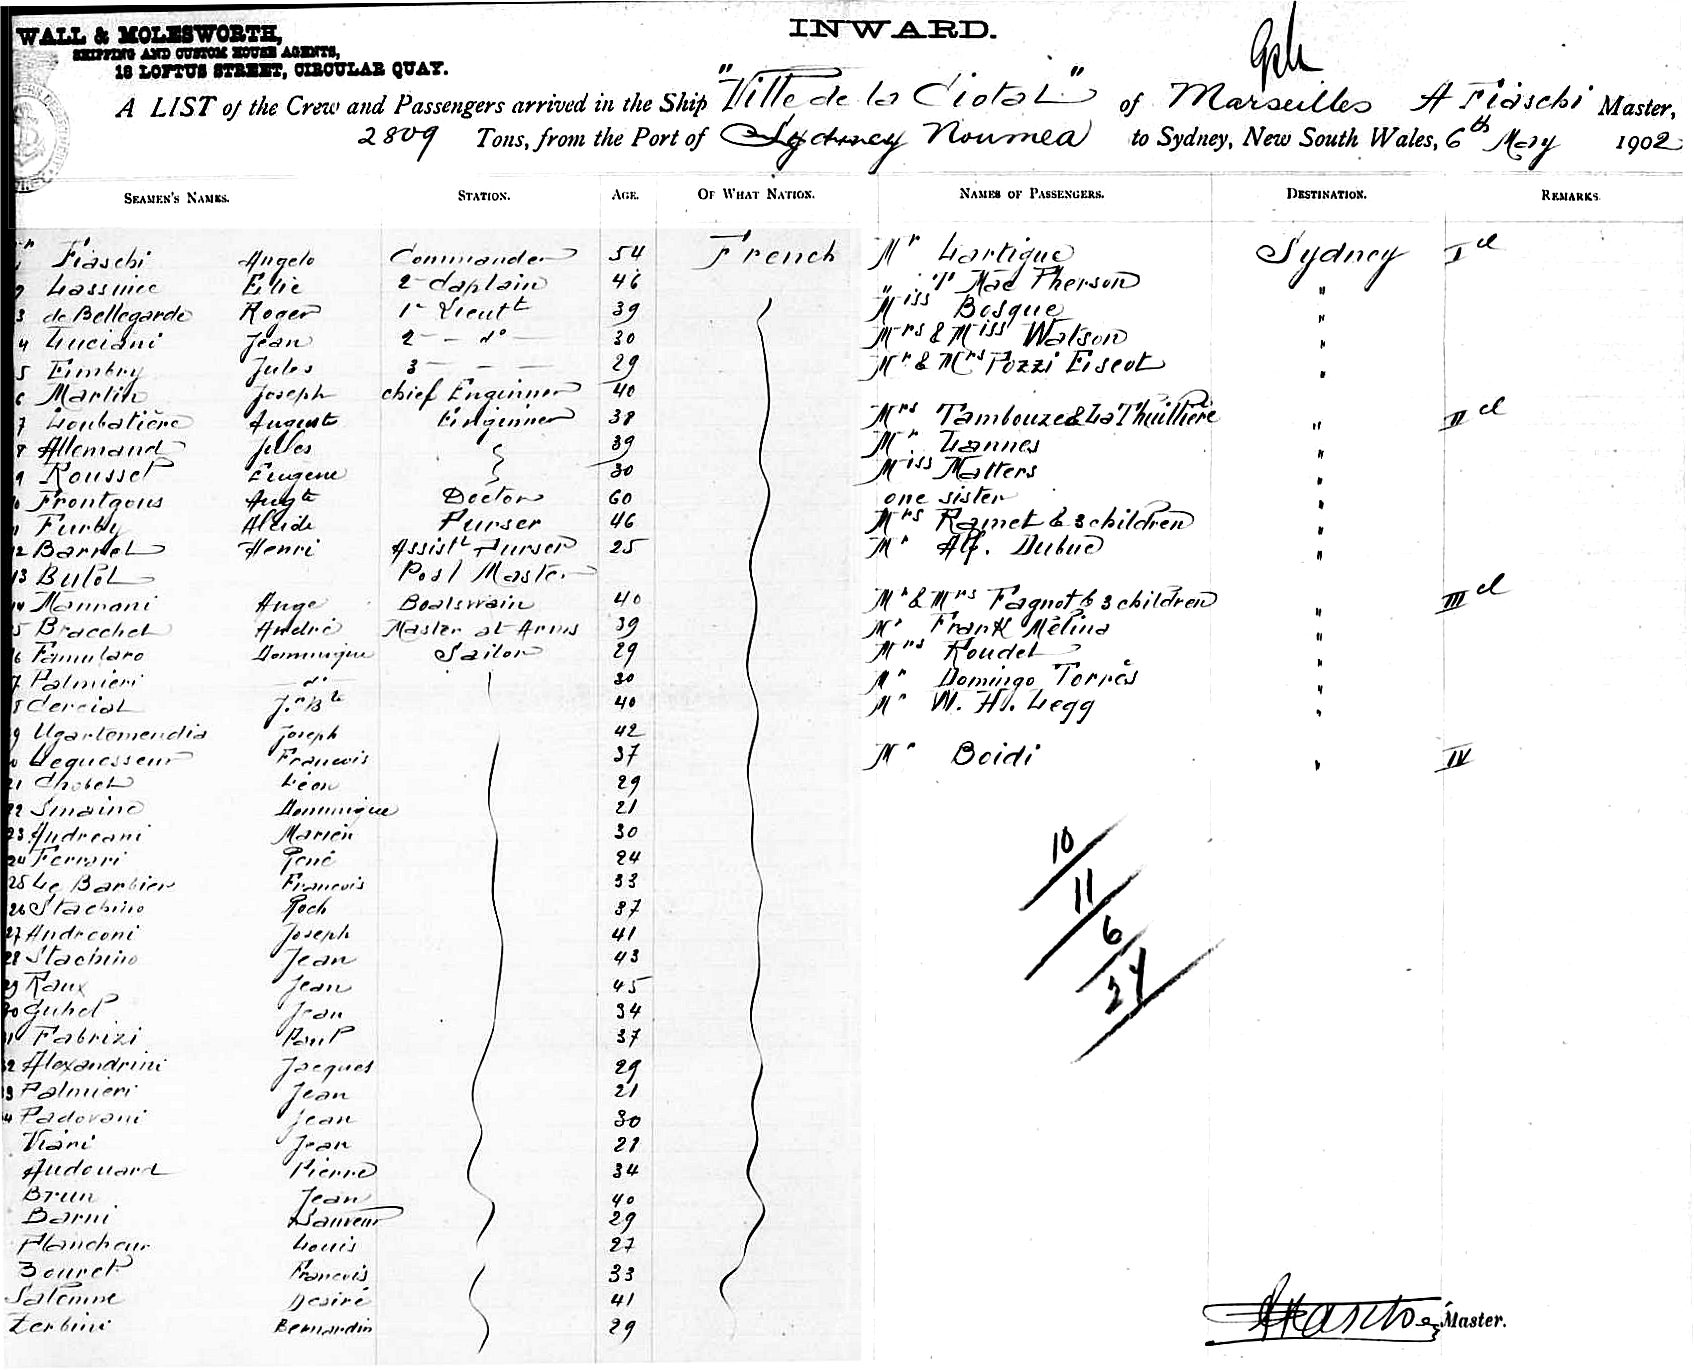 WALL & MOLESWORTH,
SHIPPING AND CUSTOM HOUSE AGENTS,
18 LOFTUS STREET, CIRCULAR QUAY.
INWARD.
A LIST of the Crew and Passengers arrived in the Ship "Ville de la Ciotat" of Marseilles A Fiaschi Master,
2809 Tons, from the Port of Sydney Noumea to Sydney, New South Wales, 6th May 1902
SEAMEN'S NAMES. STATION. AGE. OF WHAT NATION. NAMES OF PASSENGERS. DESTINATION. REMARKS.
Fiaschi Angelo Commander 54 French Mr Lartigue Sydney I cl
2 Lassince Elie 2 Captain 46 " T Mac Pherson "
3 de Bellegarde Roger 1r Lieutt 39 Miss Bosque "
4 Luciani Jean 2 - do - 30 Mrs & Miss Watson "
5 Fimbry Jules 3 - - - 29 Mr & Mrs Pozzi Eiscot "
6 Martin Joseph chief Enginner 40
7 Loubatière August Enginner 38 Mrs Tambouze & La Thuillière " II cl
8 Allemand Jules 39 Mr Lannes "
9 Roussel Eugene 30 Miss Matters "
10 Frontgous Augte Doctor 60 one sister "
11 Furby Alcide Purser 46 Mrs Ramet & 3 children "
12 Barret Henri Assistt Purser 25 Mr Alf. Dubuc "
13 Butot Post Master
14 Mannani Ange Boatswain 40 Mr & Mrs Fagnot & 3 children " III cl
15 Bracchet André Master at Arms 39 Mr Frank Mélina "
16 Famularo Dominique Sailor 29 Mrs Roudet "
17 Palmieri - do - 30 Mr Domingo Torrès "
18 Cercial J.n Bte 40 Mr W. H. Legg "
19 Ugartemendia Joseph 42
20 Lequesseur Francois 37 Mr Boidi " IV
21 Chobet Léon 29
22 Smaine Dominique 21
23 Andreani Marien 30
24 Ferrari René 24
25 Le Barbier Francois 33
26 Stachino Roch 37
27 Andreoni Joseph 41
28 Stachino Jean 43
29 Raux Jean 45
30 Guhel Jean 34
31 Fabrizi Paul 37
32 Alexandrini Jacques 29
33 Palmieri Jean 21
34 Padovani Jean 30
Viani Jean 21
Audouard Pierre 34
Brun Jean 40
Barni Sauveur 29
Plancheur Louis 27
Bourel Francois 33
Salenne Desiré 41
Zerbini Bernardin 29
10
11
6
27
Master.